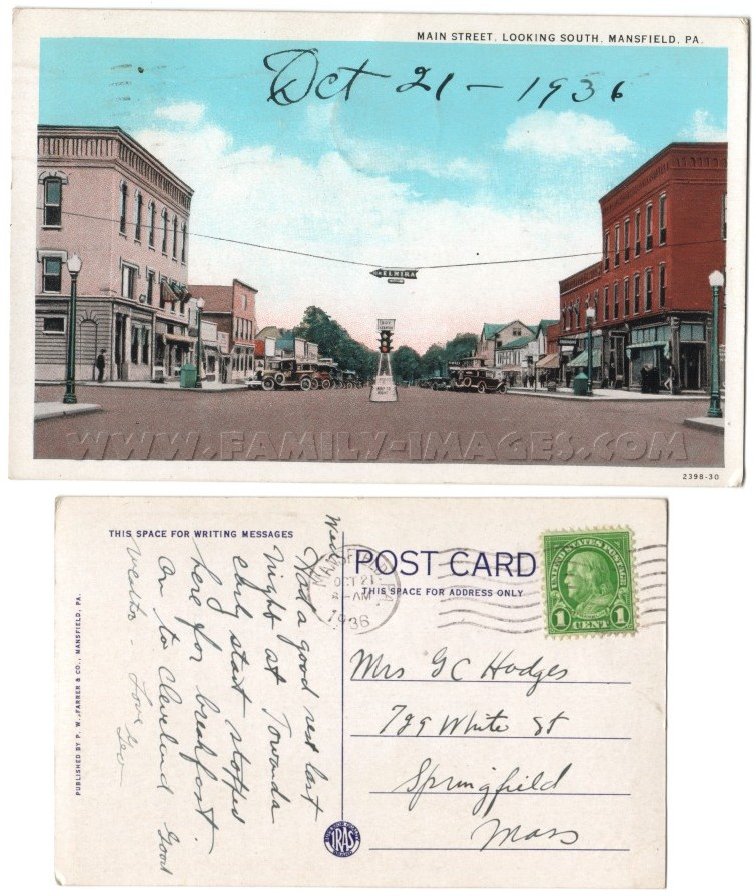 MAIN STREET, LOOKING SOUTH, MANSFIELD, PA.
Oct 21 - 1936
ELMIRA
WWW.FAMILY-IMAGES.COM
2398-30
THIS SPACE FOR WRITING MESSAGES
Wed
Had a good rest last
night at Towanda
early start stopped
here for breakfast.
On to Cleveland Good
weather - Love
Geo
PUBLISHED BY P. W. FARRER & CO., MANSFIELD, PA.
MANSFIELD
OCT 21
AM
1936
POST CARD
THIS SPACE FOR ADDRESS ONLY
UNITED STATES POSTAGE
1 1
CENT
Mrs G C Hodges
729 White St
Springfield
Mass